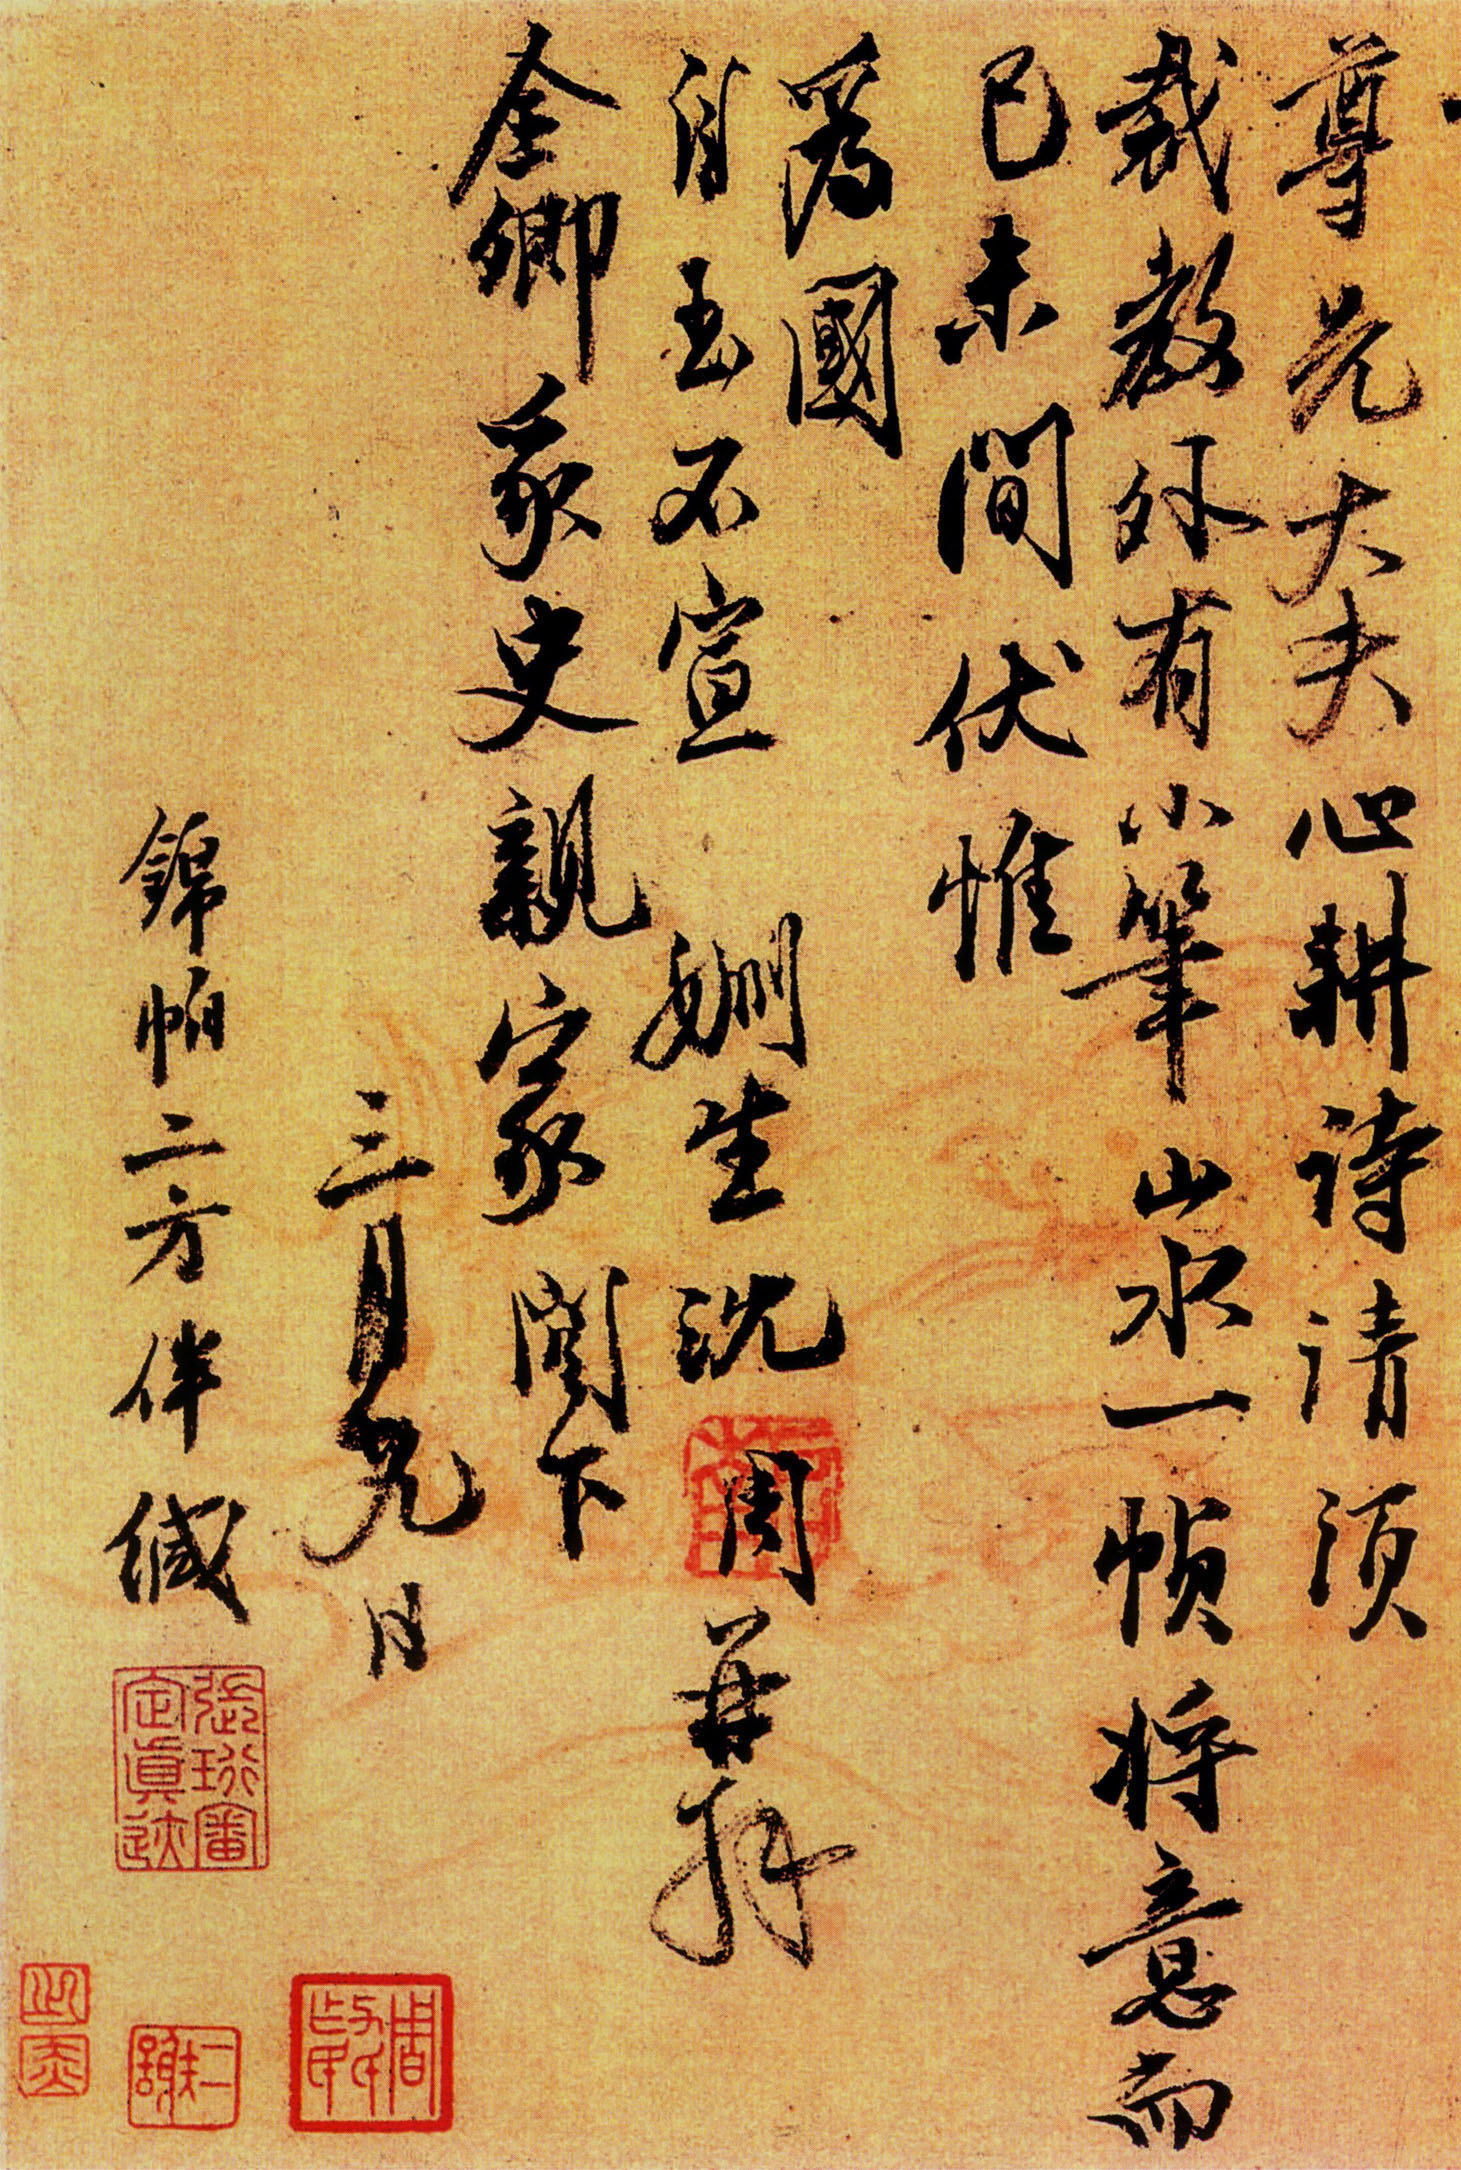 尊先大夫心耕詩請須
裁教外有小筆山水一幀將意而
已未間伏惟
爲國
自玉不宣 姻生沈周再拜
全卿冢史親家閣下
三月九日
錦帕二方伴緘
張珩審定真迹